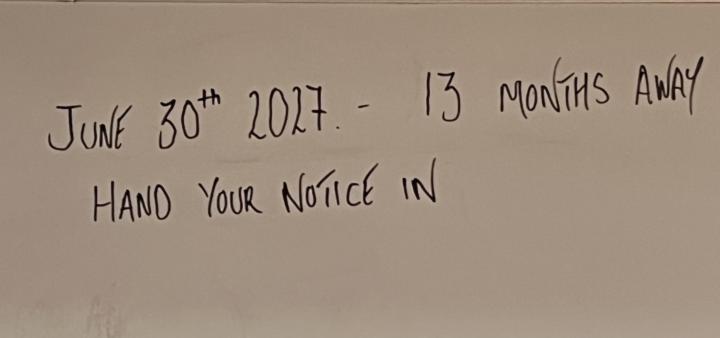 JUNE 30th 2027. - 13 MONTHS AWAY
HAND YOUR NOTICE IN